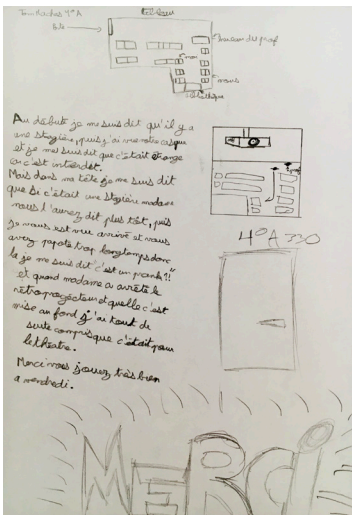 4°A
tableau
Porte
bureau du prof
moi
nous
Au début je me suis dit qu'il y a
une stagière, puis j'ai vu votre casque
et je me suis dit que c'était étrange
car c'est interdit.
Mais dans ma tête je me suis dit
que si c'était une stagière madame
nous l'aurez dit plus tôt, puis
je vous est vu arrivé et vous
avez papoté trop longtemps donc
là je me suis dit "c'est un prank?!"
et quand madame a arrêté le
rétroprojecteur et quelle c'est
mise au fond j'ai tout de
suite compris que c'était pour
le théatre.
Merci vous jouez très bien
a vendredi.
4°A 330
MERCI